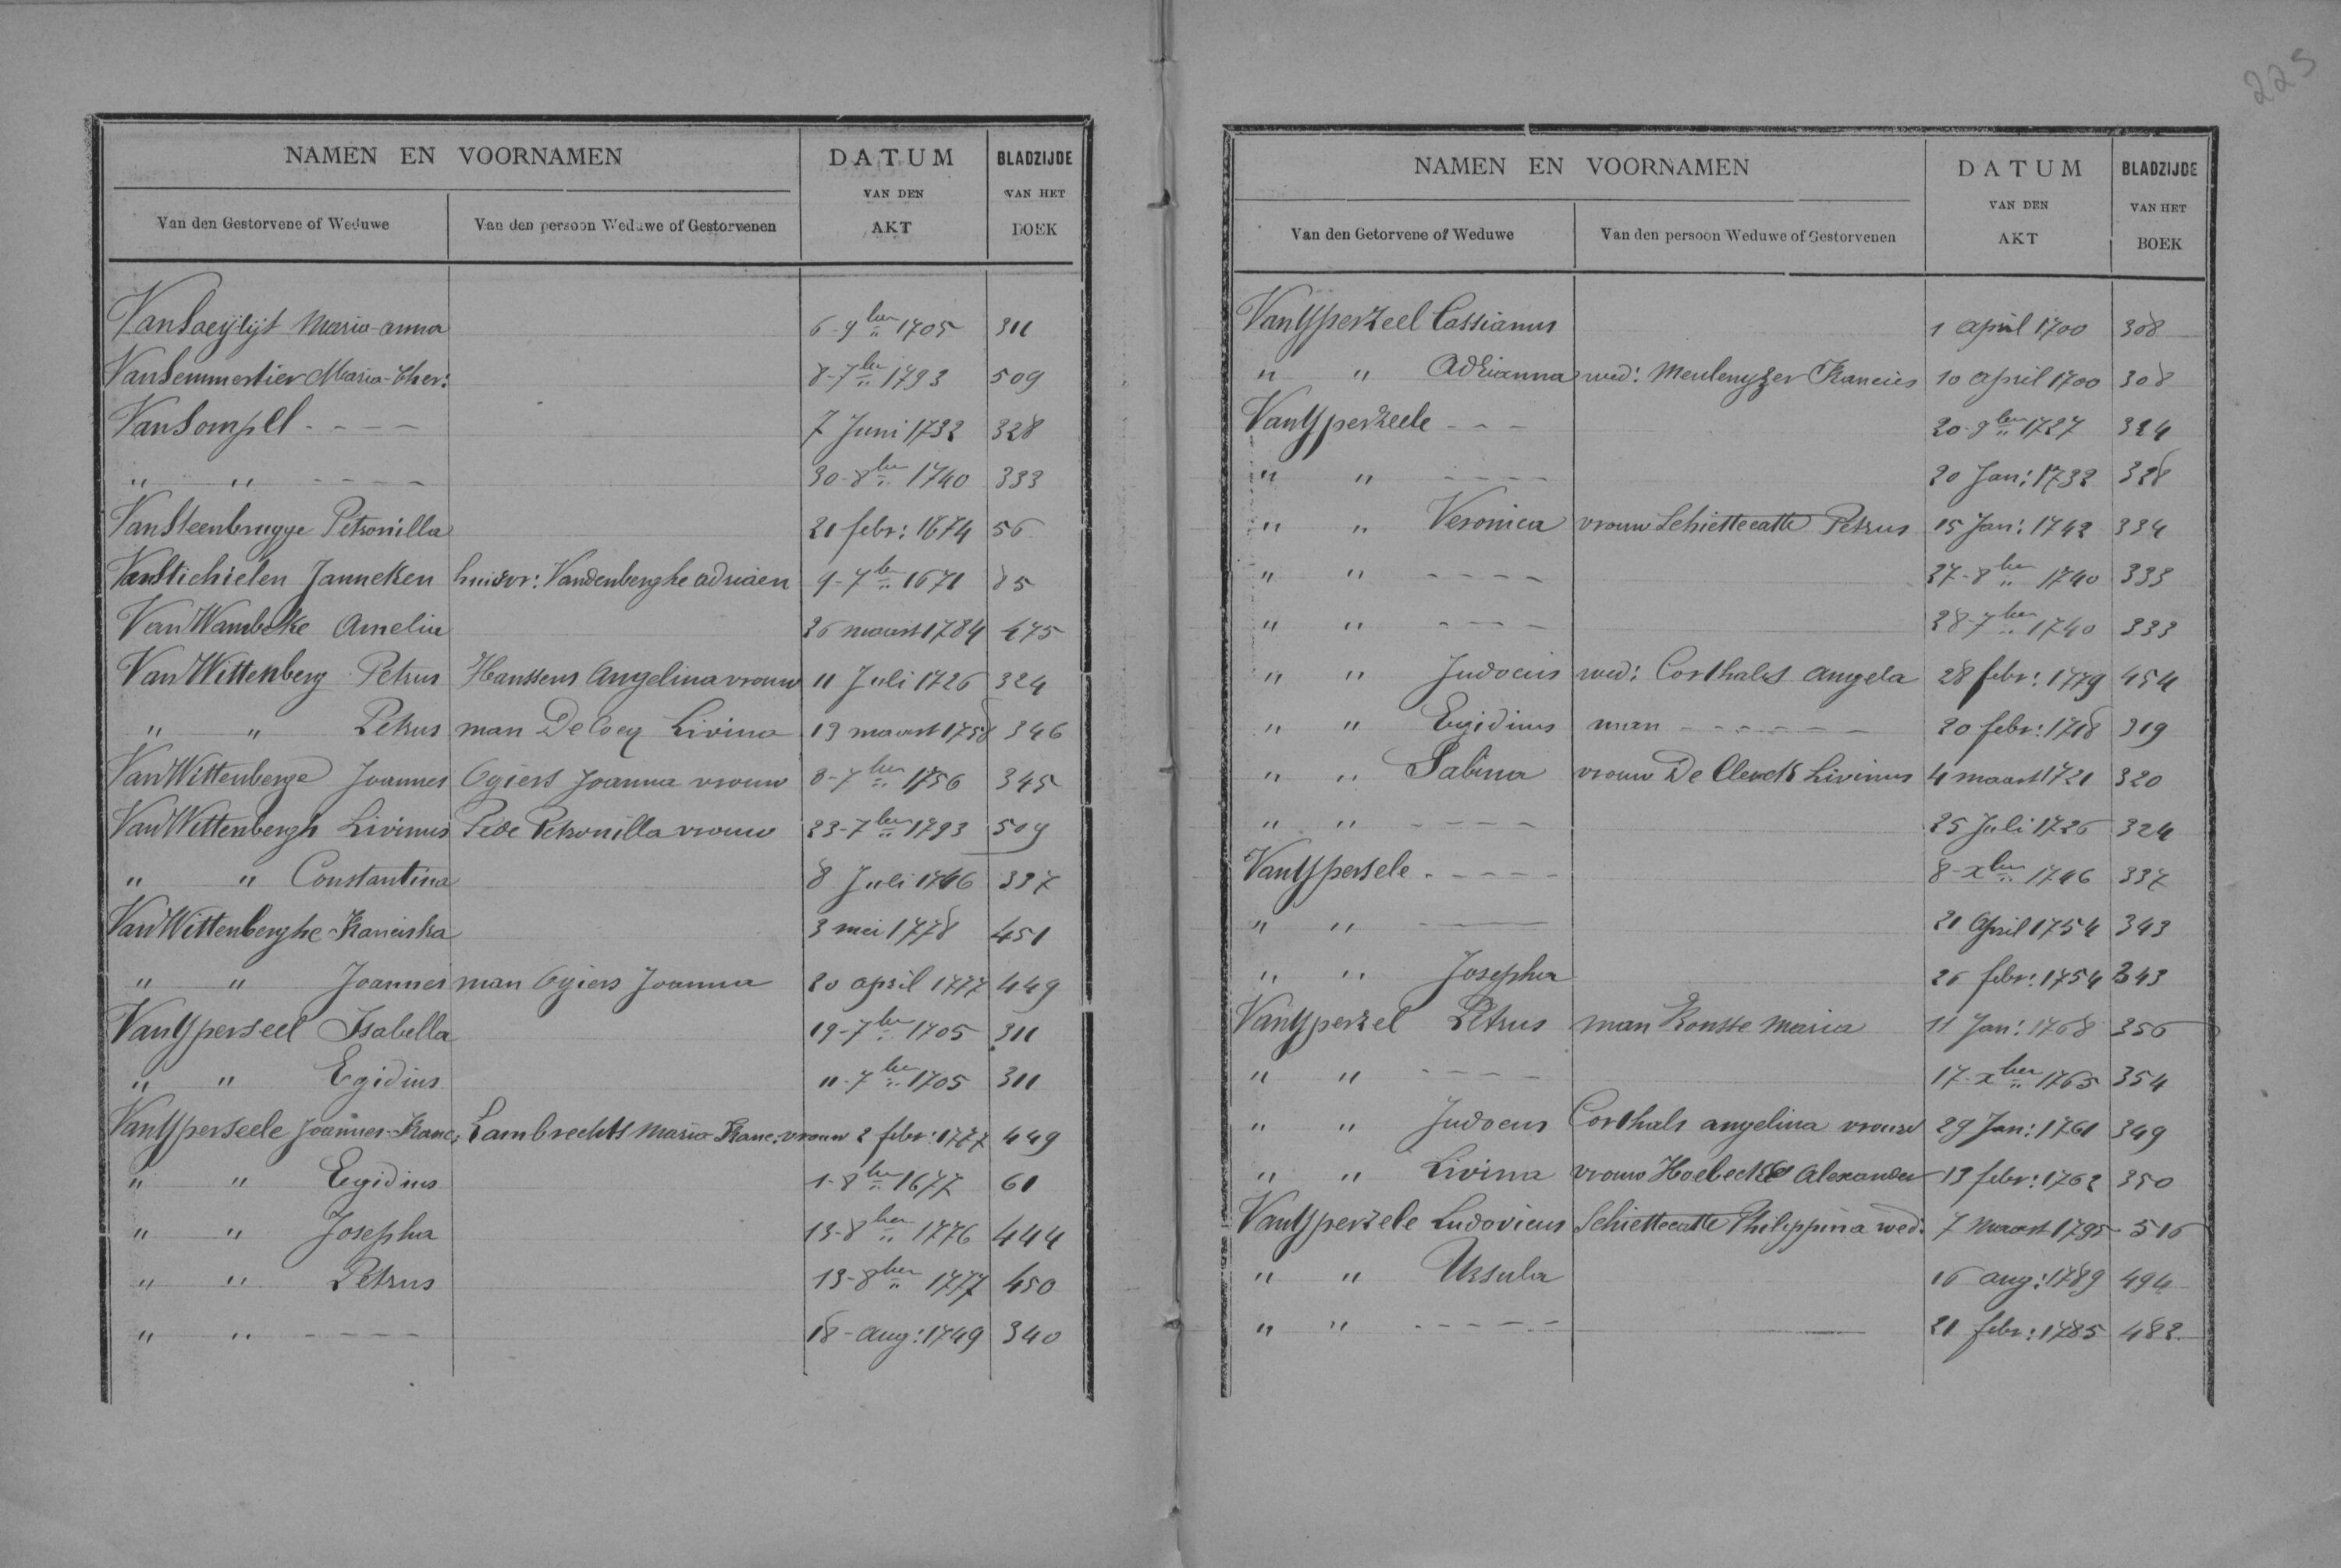 225
NAMEN EN VOORNAMEN DATUM VAN DEN AKT BLADZIJDE VAN HET BOEK
Van den Gestorvene of Weduwe Van den persoon Weduwe of Gestorvenen
Maria-anna 6-9ber 1705 311
VanSemmertier Maria-Ther: 8-7ber 1793 509
VanSompel - - - - 7 Juni 1732 328
" " - - - - 30-8ber 1740 333
VanSteenbrugge Petronilla 21 febr: 1674 56
VanStichielen Janneken huisvr: Vandenberghe adriaen 9-7ber 1671 85
VanWambeke Amelia 26 maart 1784 475
VanWittenberg Petrus Hanssens Angelina vrouw 11 Juli 1726 324
" " Petrus man De Cocq Livina 13 maart 1758 346
VanWittenberge Joannes Ogiers Joanna vrouw 8-7ber 1756 345
VanWittenbergh Livinus Pede Petronilla vrouw 23-7ber 1793 509
" " Constantina 8 Juli 1746 337
VanWittenberghe Franciska 3 mei 1778 451
" " Joannes man Ogiers Joanna 20 april 1777 449
VanYperseel Isabella 19-7ber 1705 311
" " Egidius 11-7ber 1705 311
VanYperseele Joannes-Franc: Lambrechts Maria Franc. vrouw 2 febr: 1777 449
" " Egidius 1-8ber 1677 61
" " Josepha 13-8ber 1776 444
" " Petrus 13-8ber 1777 450
" " - - - - 18-aug: 1749 340
NAMEN EN VOORNAMEN DATUM VAN DEN AKT BLADZIJDE VAN HET BOEK
Van den Getorvene of Weduwe Van den persoon Weduwe of Gestorvenen
VanYperzeel Cassianus 1 april 1700 308
" " Adrianna wed: Meulenyzer Francies 10 april 1700 308
VanYperzeele - - - 20-9ber 1727 324
" " - - - - 20 Jan: 1732 328
" " Veronica vrouw Schiettecatte Petrus 15 Jan: 1742 334
" " - - - - 27-8ber 1740 333
" " - - - - 28-7ber 1740 333
" " Judocus wed: Corthals Angela 28 febr: 1779 454
" " Egidius man - - - - - - 20 febr: 1718 319
" " Sabina vrouw De Clerck Livinus 4 maart 1721 320
" " - - - - 25 Juli 1726 324
VanYpersele - - - - - 8-xber 1746 337
" " - - - - 21 April 1754 343
" " Josepha 26 febr: 1754 343
VanYperzel Petrus man Ronsse Maria 11 Jan: 1768 356
" " - - - - 17-xber 1765 354
" " Judocus Corthals angelina vrouw 29 Jan: 1761 349
" " Livina vrouw Hoebecke Alexander 13 febr: 1762 350
VanYperzele Ludovicus Schiettecatte Philippina wed. 7 Maart 1795 516
" " Ursula 16 aug: 1789 494
" " - - - - - 21 febr: 1785 482